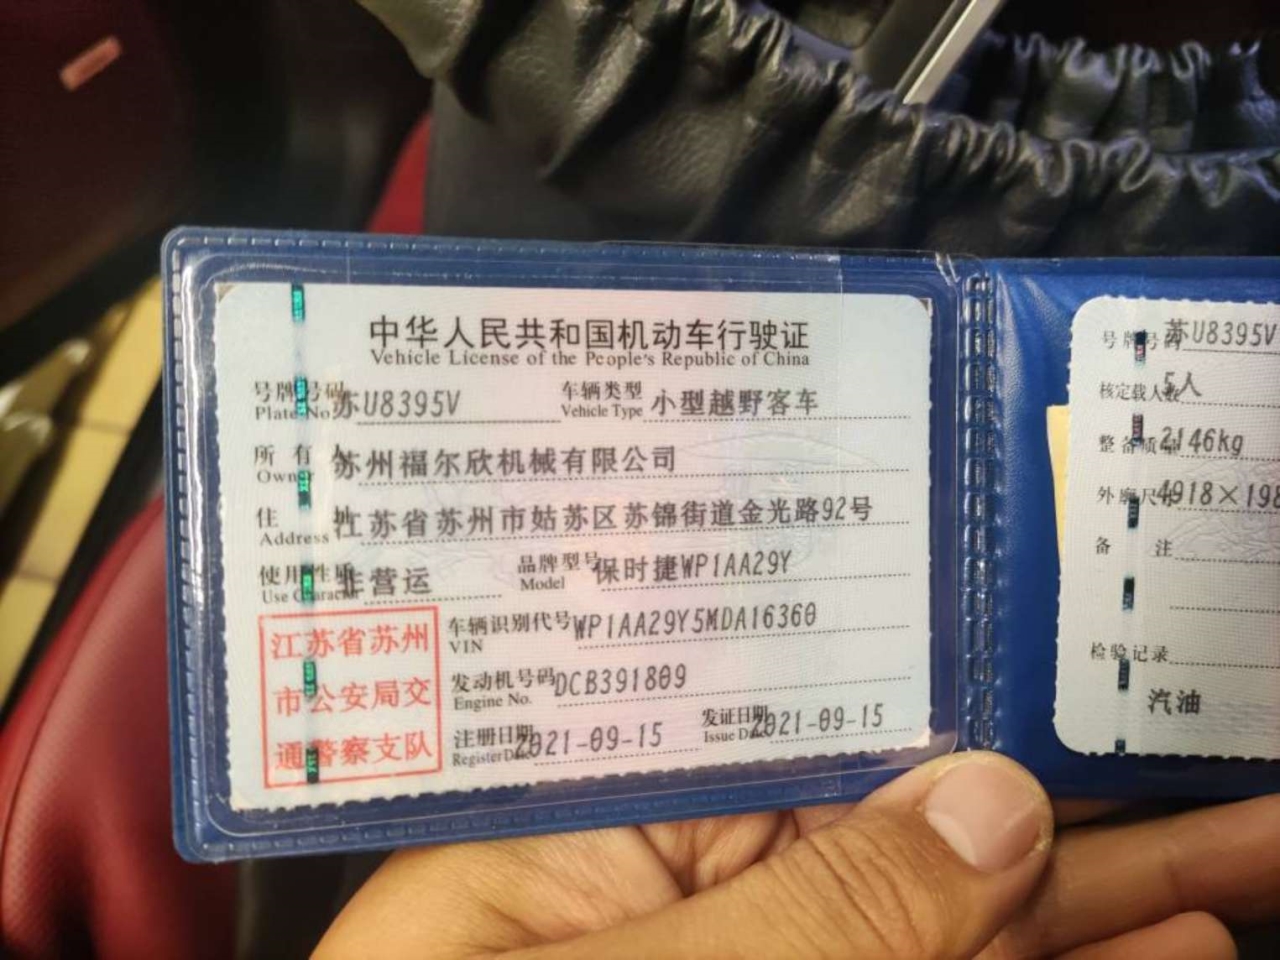 中华人民共和国机动车行驶证
Vehicle License of the People's Republic of China
号牌号码 苏U8395V 车辆类型 小型越野客车
Plate No. Vehicle Type
所有人 苏州福尔欣机械有限公司
Owner
住址 江苏省苏州市姑苏区苏锦街道金光路92号
Address
使用性质 非营运 品牌型号 保时捷WP1AA29Y
Use Character Model
江苏省苏州
市公安局交
通警察支队
车辆识别代号 WP1AA29Y5MDA16360
VIN
发动机号码 DCB391809
Engine No.
注册日期 2021-09-15 发证日期 2021-09-15
Register Date Issue Date
号牌号码 苏U8395V
核定载人数 5人
整备质量 2146kg
外廓尺寸 4918×198
备注
检验记录
汽油